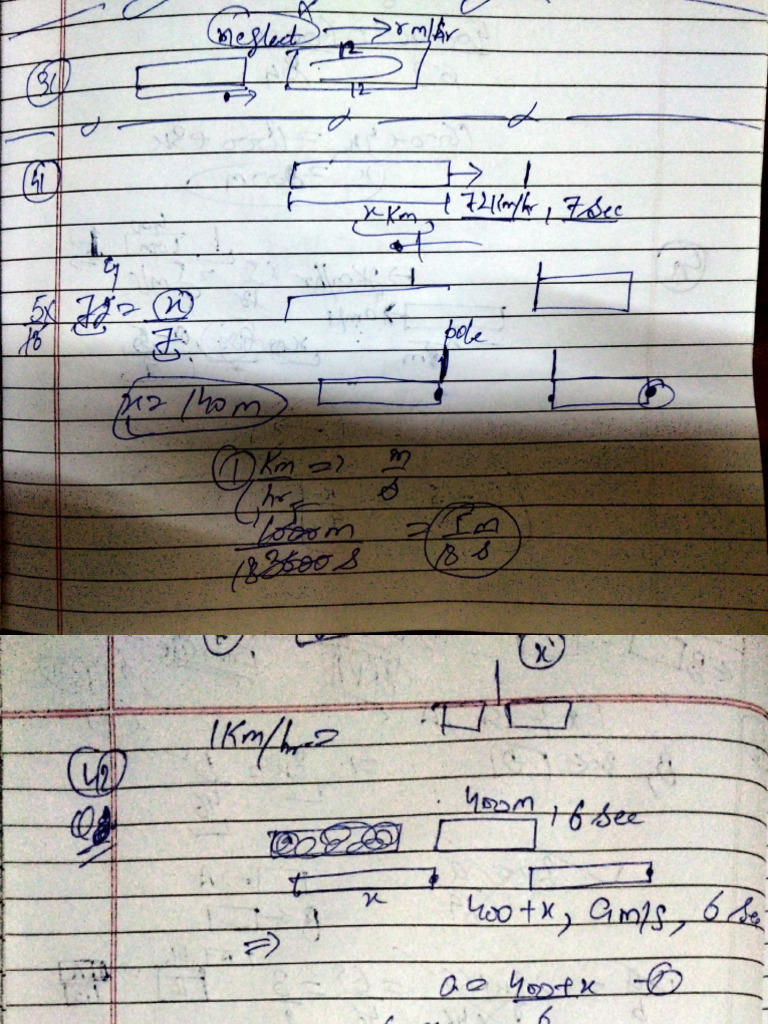 neglect → rm/hr
12
31
12
41
72Km/hr, 7 Sec
x Km
y
5x/18 72 = x/7
pole
x = 140 m
1 Km/hr => m/s
1000m/3600 s = 5 m/18 s
x
1Km/hr =
42
400m, 6 Sec
x
400+x, a m/s, 6 Sec
=>
a = 400+x/6